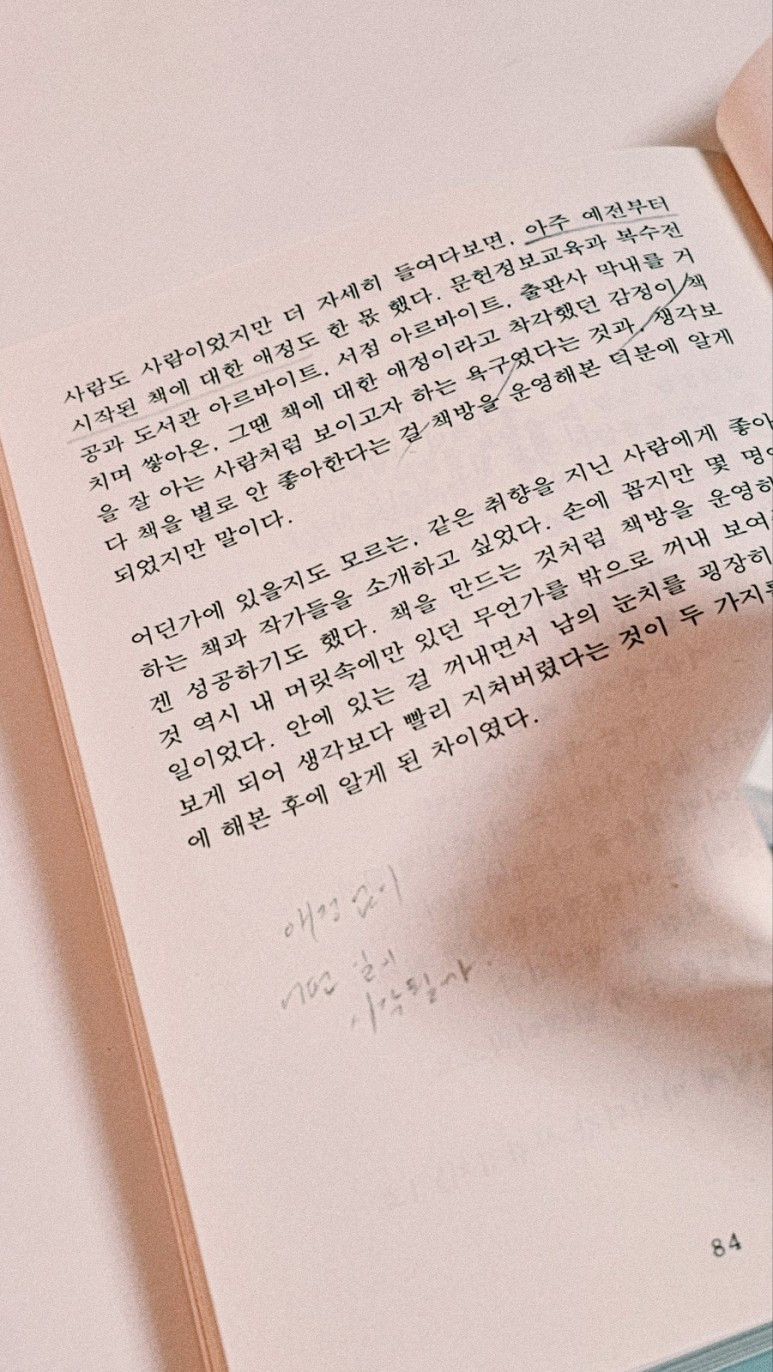 사람도 사람이었지만 더 자세히 들여다보면, 아주 예전부터
시작된 책에 대한 애정도 한 몫 했다. 문헌정보교육과 복수전
공과 도서관 아르바이트, 서점 아르바이트, 출판사 막내를 거
치며 쌓아온, 그땐 책에 대한 애정이라고 착각했던 감정이 책
을 잘 아는 사람처럼 보이고자 하는 욕구였다는 것과, 생각보
다 책을 별로 안 좋아한다는 걸 책방을 운영해본 덕분에 알게
되었지만 말이다.
어딘가에 있을지도 모르는, 같은 취향을 지닌 사람에게 좋아
하는 책과 작가들을 소개하고 싶었다. 손에 꼽지만 몇 명에
겐 성공하기도 했다. 책을 만드는 것처럼 책방을 운영하
것 역시 내 머릿속에만 있던 무언가를 밖으로 꺼내 보여
일이었다. 안에 있는 걸 꺼내면서 남의 눈치를 굉장히
보게 되어 생각보다 빨리 지쳐버렸다는 것이 두 가지를
에 해본 후에 알게 된 차이였다.
애정 없이
어떤 일이
시작될까.
84